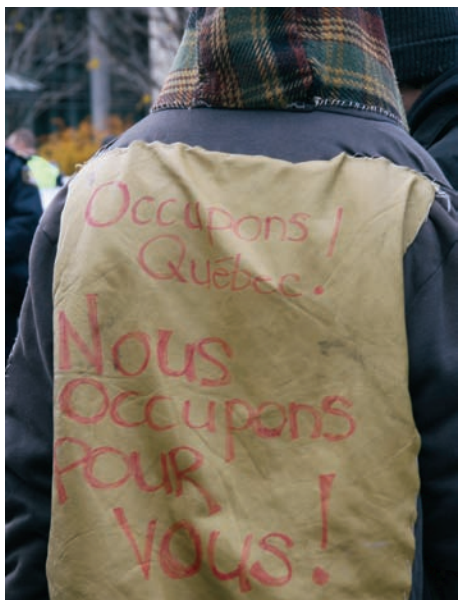 Occupons!
Québec.
Nous
occupons
pour
vous!